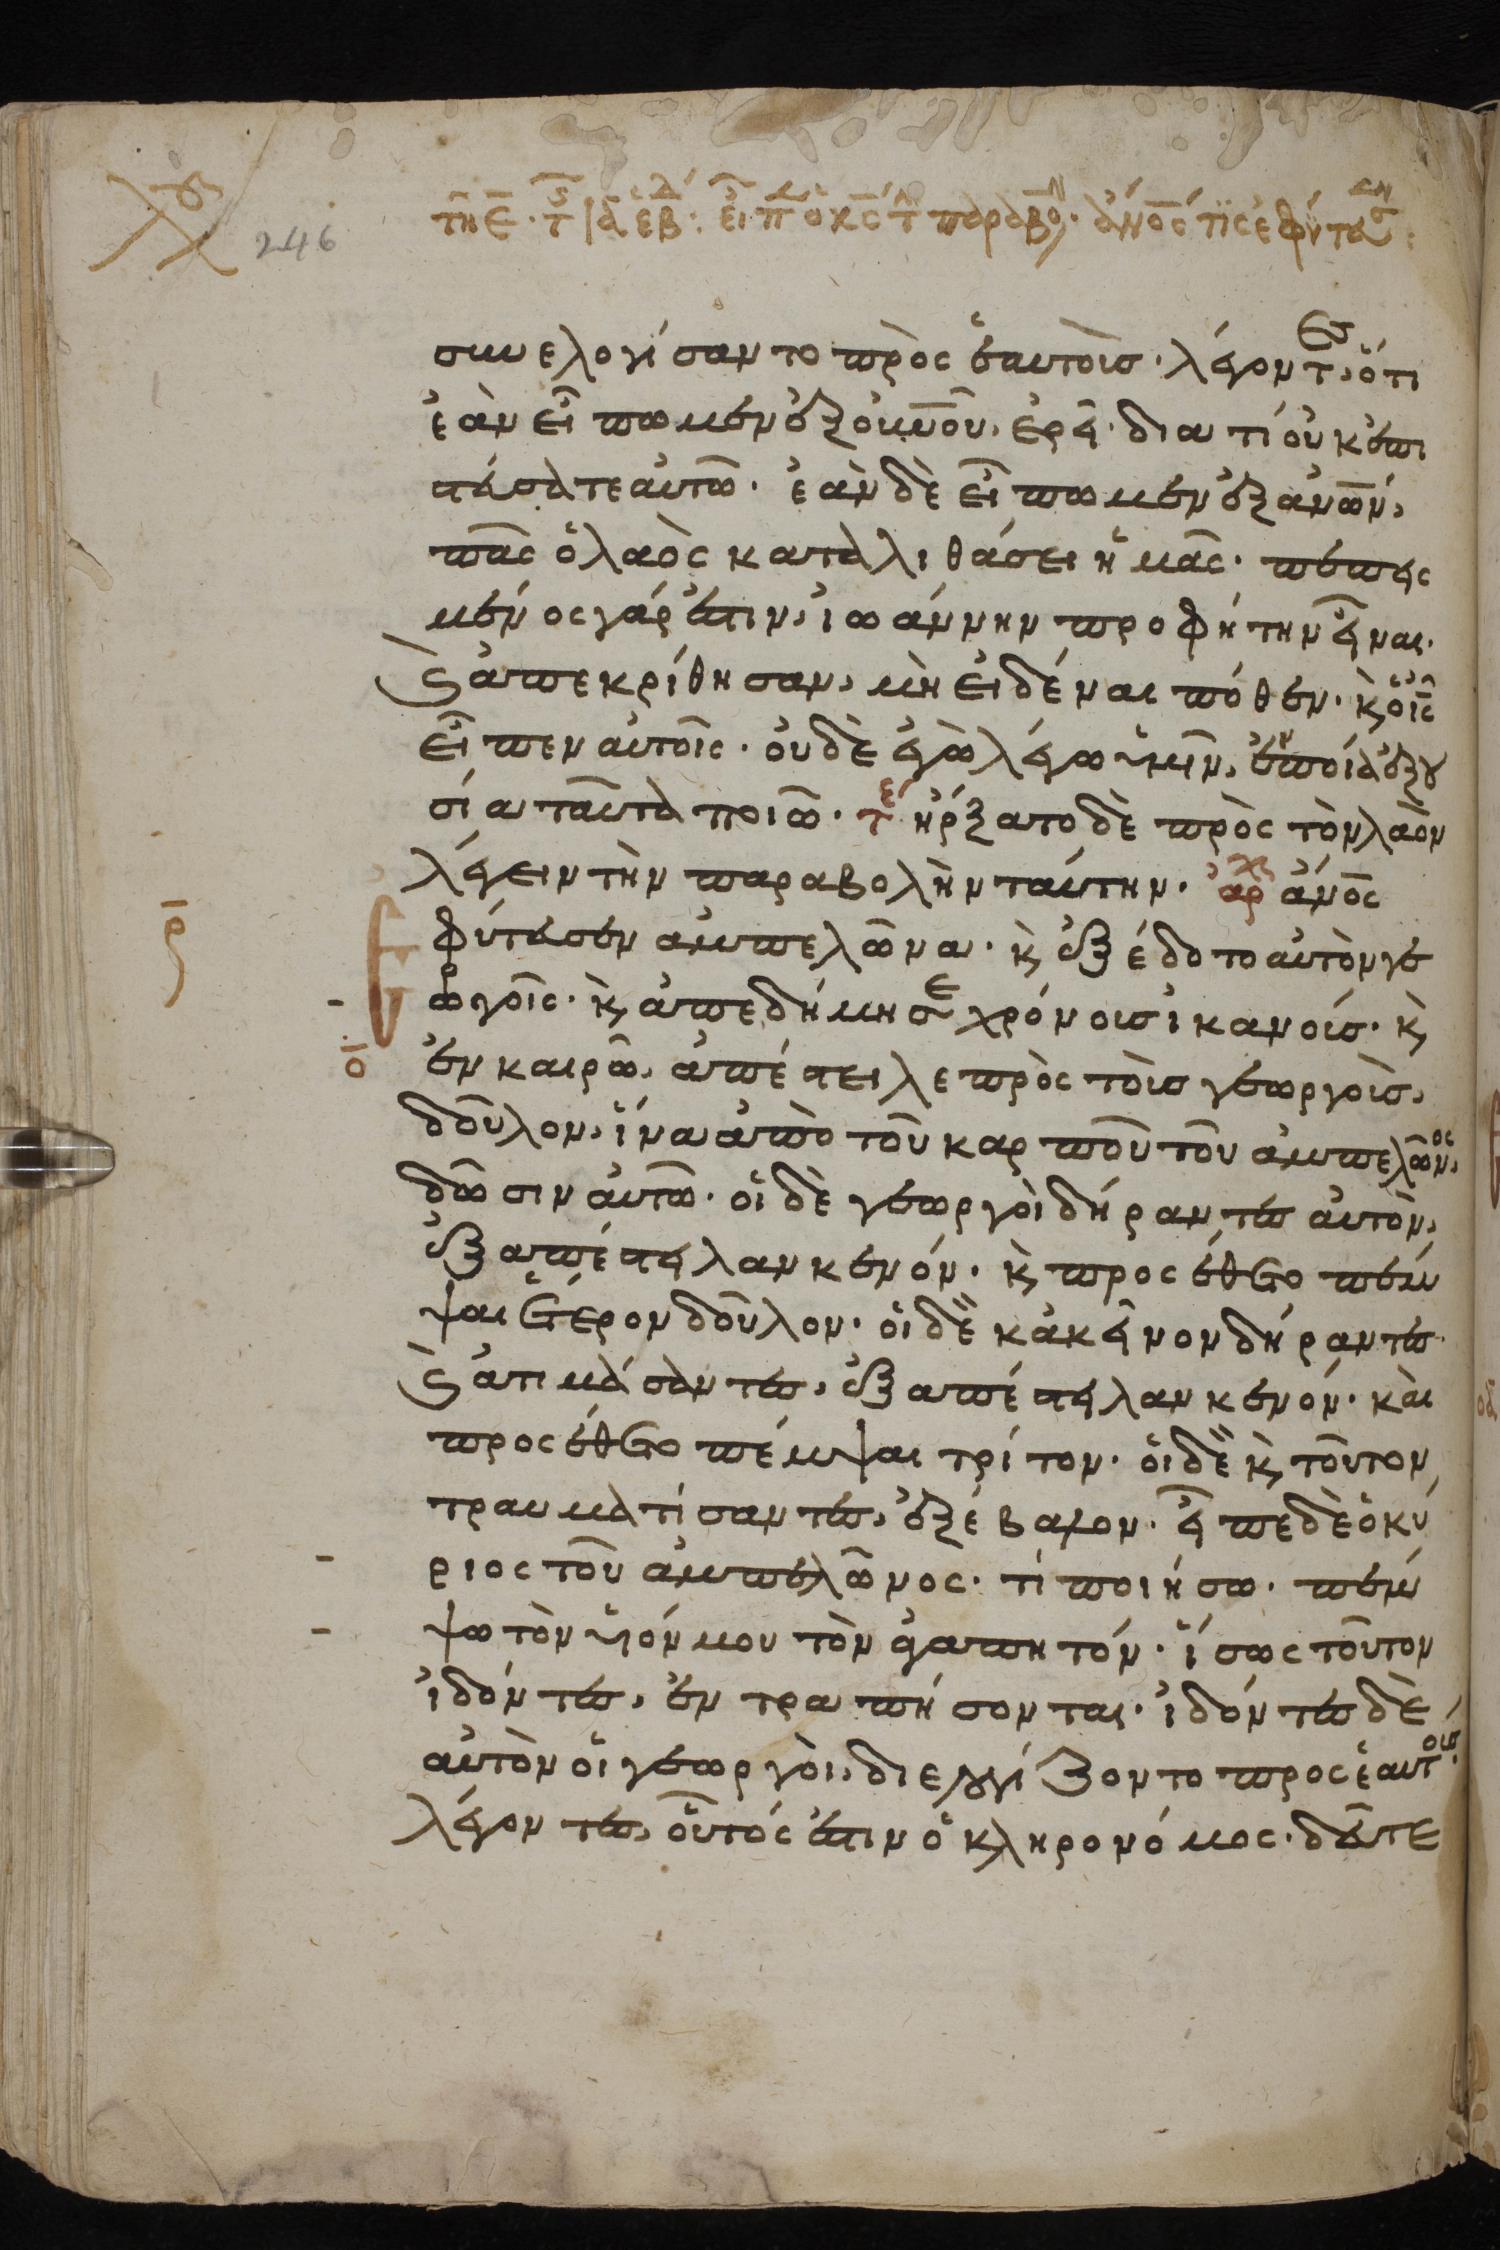 246
συνελογίσαντο πρὸς ἑαυτοὺς· λέγοντες, ὅτι
ἐὰν εἴπωμεν ἐξ οὐνου, ἐρεῖ· διατί οὐκ ἐπι
στεύσατε αὐτῶ· ἐὰν δὲ εἴπωμεν ἐξ ἀνων,
πᾶς ὁ λαὸς καταλιθάσει ἡμᾶς· πεπεισ
μένος γάρ ἐστιν, ἰωάννην προφήτην εἶναι·
καὶ ἀπεκρίθησαν, μὴ εἰδέναι πόθεν· κ ὁ ις
εἶπεν αὐτοῖς· οὐδὲ ἐγὼ λέγω ὑμῖν, ἐν ποία ἐξου
σία ταῦτα ποιῶ· τε ἤρξατο δὲ πρὸς τὸν λαὸν
λέγειν τὴν παραβολὴν ταύτην· αρχ ἀνος
ἐφύτευσεν ἀμπελῶνα· κ ἐξέδοτο αὐτὸν γε
ωργοῖς· κ ἀπεδήμησε χρόνους ἱκανούς· κ
ο
ἐν καιρῶ, ἀπέστειλε πρὸς τοὺς γεωργοὺς,
δοῦλον, ἵνα ἀπὸ τοῦ καρποῦ τοῦ ἀμπελῶνος,
δῶσιν αὐτῶ· οἱ δὲ γεωργοὶ δήραντες αὐτὸν,
ἐξαπέστειλαν κενόν· κ προσέθετο πέμ
ψαι ἕτερον δοῦλον· οἱ δὲ κἀκεῖνον δήραντες
καὶ ἀτιμάσαντες, ἐξαπέστειλαν κενόν· καὶ
προσέθετο πέμψαι τρίτον· οἱ δὲ κ τοῦτον
τραυματίσαντες, ἐξέβαλον· εἶπε δὲ ὁ κύ
ριος τοῦ ἀμπελῶνος· τί ποιήσω· πέμ
ψω τὸν υἱόν μου τὸν ἀγαπητόν· ἴσως τοῦτον
ἰδόντες, ἐντραπήσονται· ἰδόντες δὲ
αὐτὸν οἱ γεωργοὶ, διελογίζοντο πρὸς ἑαυτούς·
λέγοντες, οὗτός ἐστιν ὁ κληρονόμος· δεῦτε